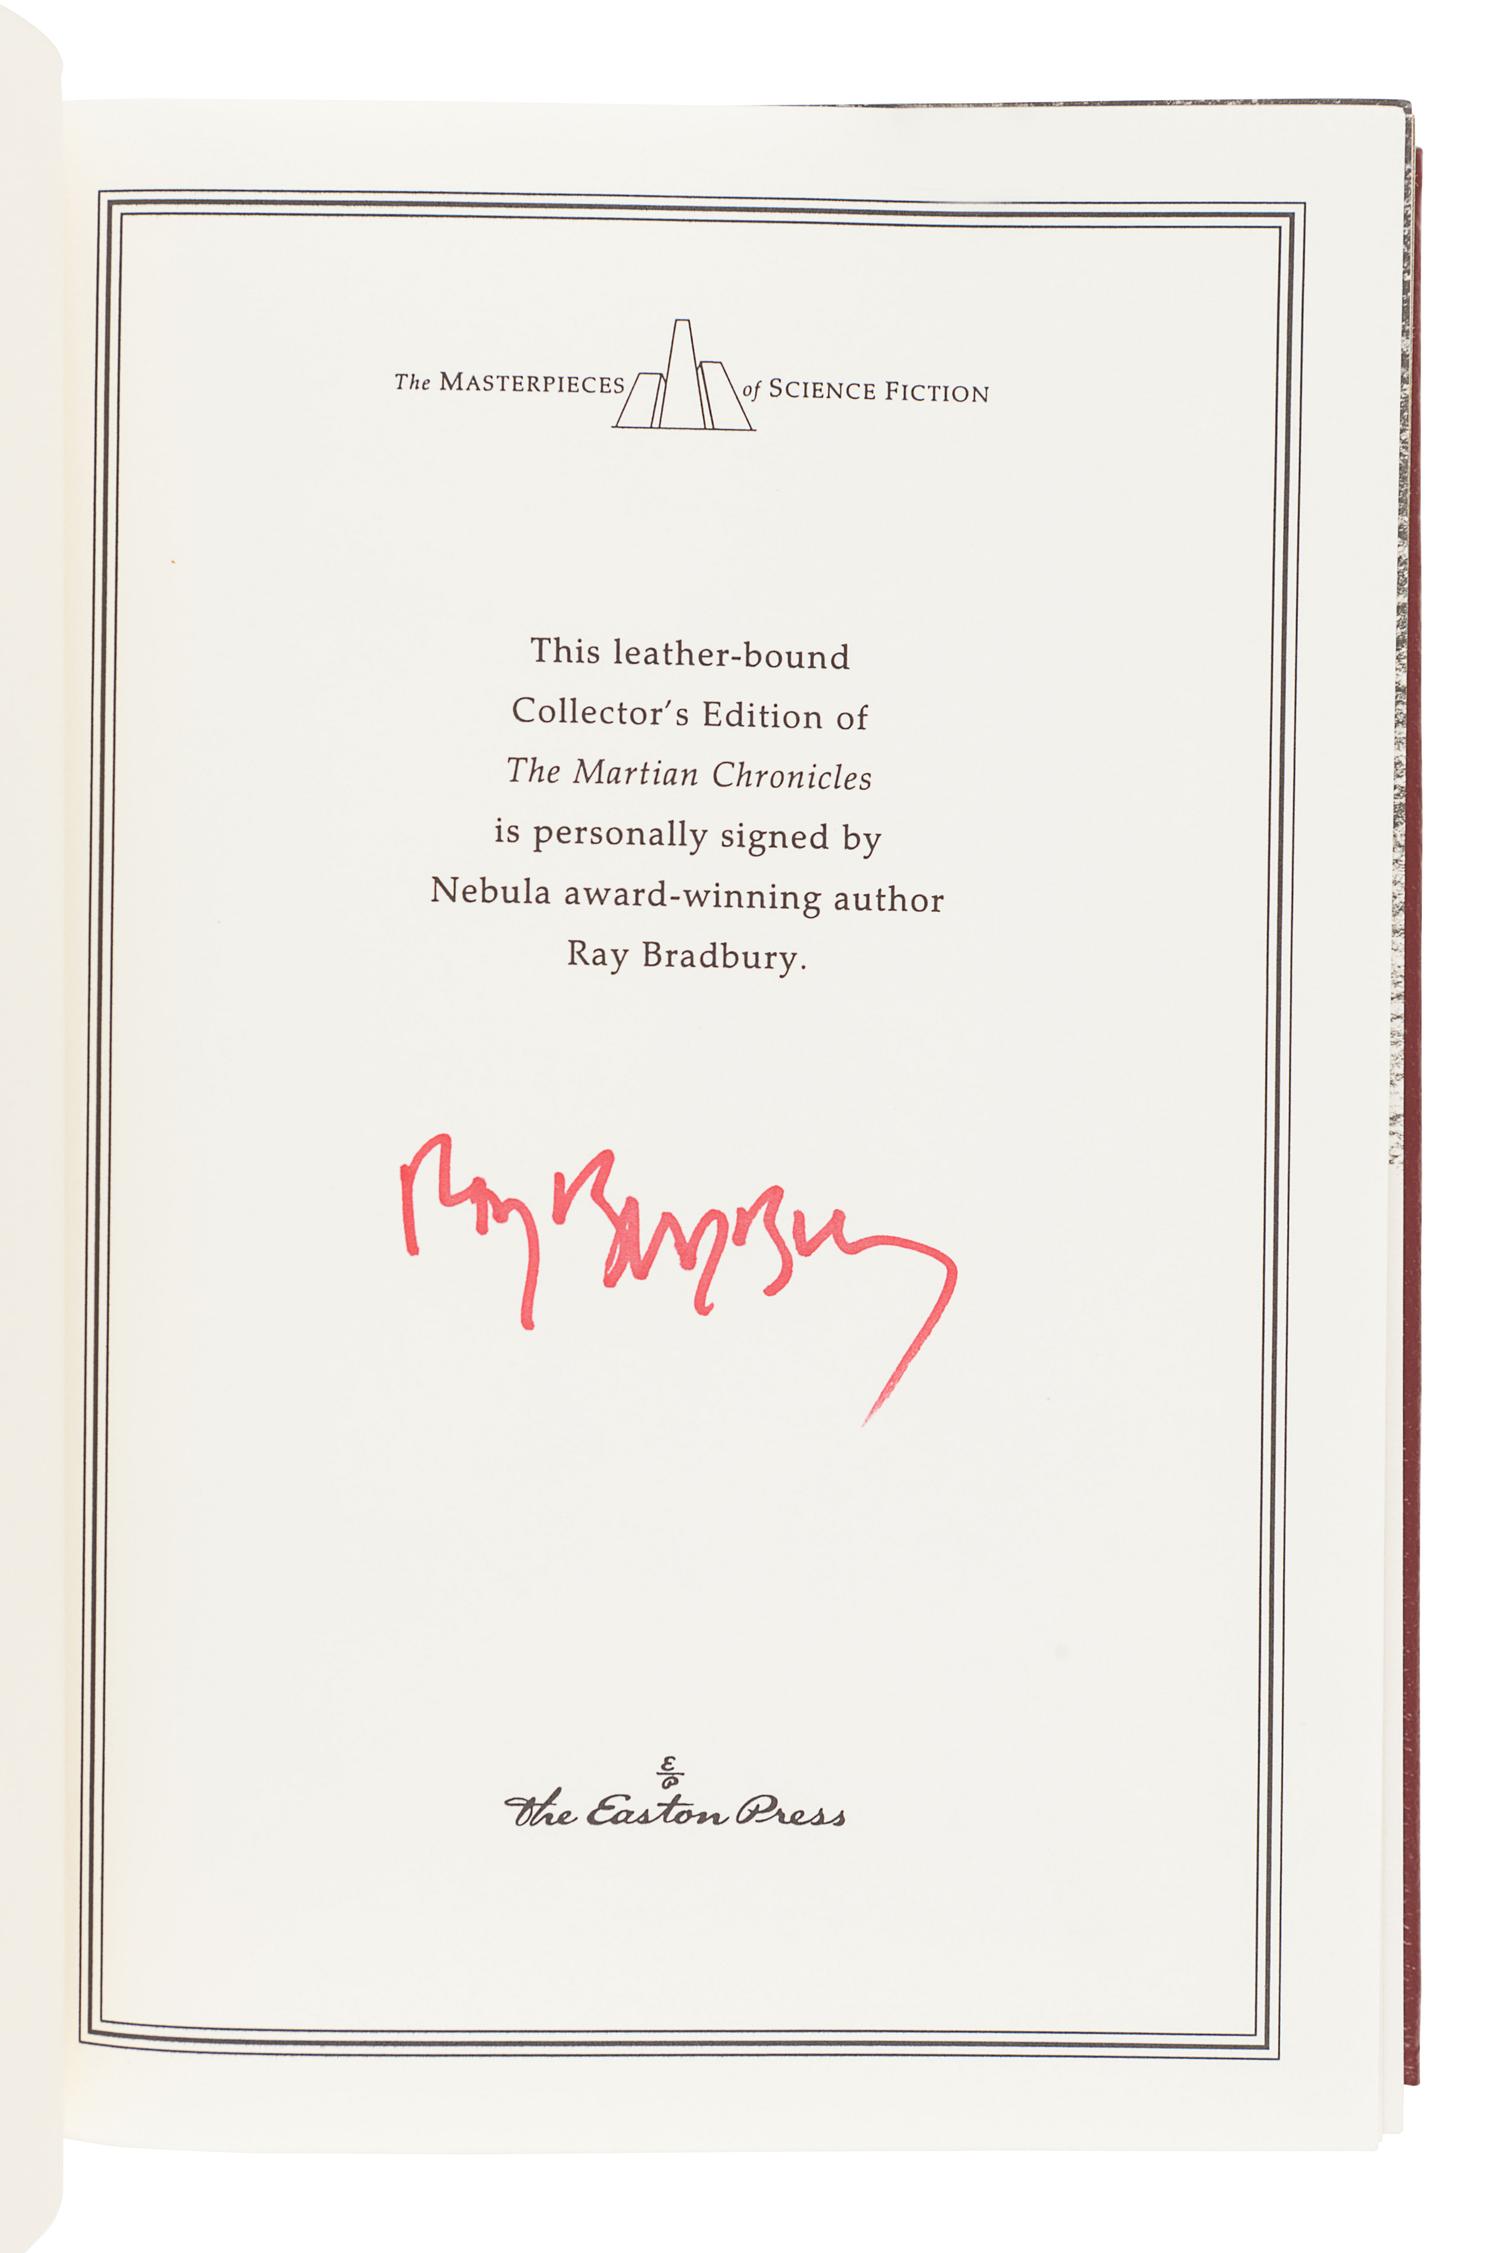 The MASTERPIECES of SCIENCE FICTION
This leather-bound
Collector's Edition of
The Martian Chronicles
is personally signed by
Nebula award-winning author
Ray Bradbury.
Ray Bradbury
EP
The Easton Press